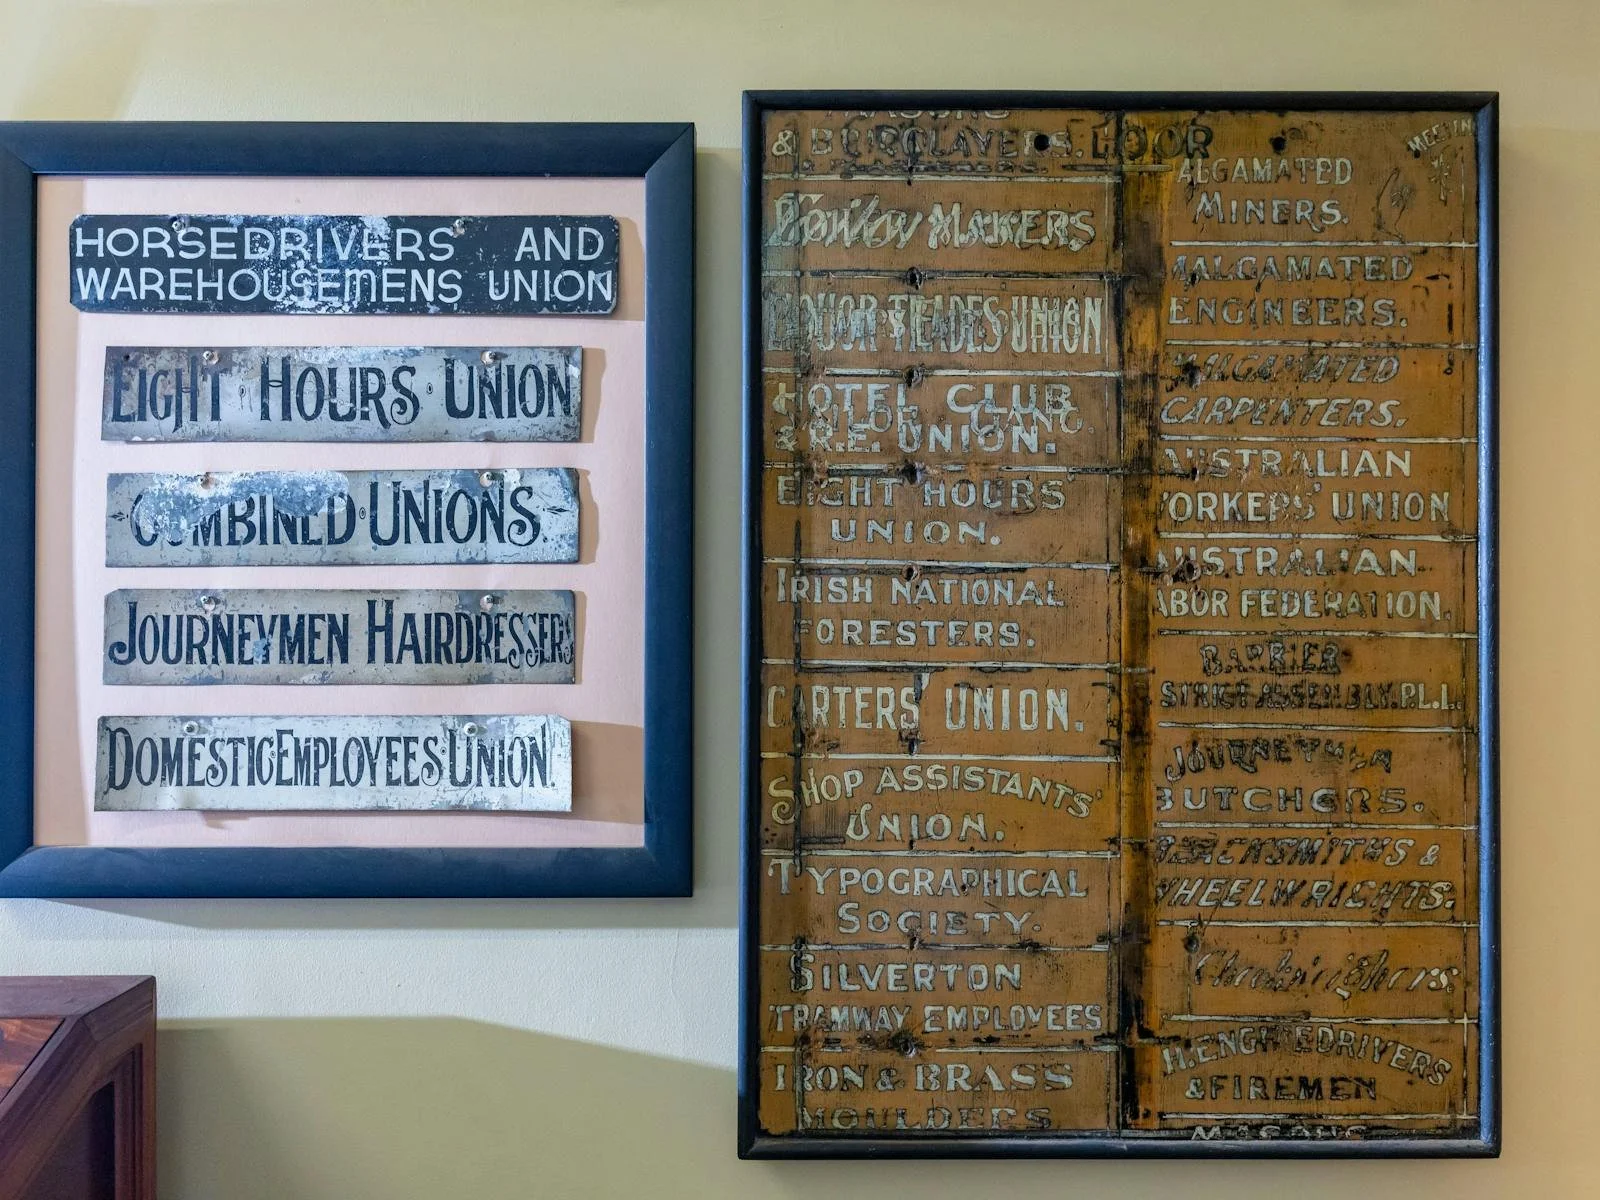 HORSEDRIVERS AND
WAREHOUSEMENS UNION
EIGHT HOURS UNION
COMBINED UNIONS
JOURNEYMEN HAIRDRESSERS
DOMESTIC EMPLOYEES UNION
MAKERS
LIQUOR TRADES UNION
HOTEL CLUB
& R.E. UNION.
EIGHT HOURS'
UNION.
IRISH NATIONAL
FORESTERS.
CARTERS' UNION.
SHOP ASSISTANTS'
UNION.
TYPOGRAPHICAL
SOCIETY.
SILVERTON
TRAMWAY EMPLOYEES
IRON & BRASS
MOULDERS
ALGAMATED
MINERS.
MALGAMATED
ENGINEERS.
MALGAMATED
CARPENTERS.
AUSTRALIAN
ORKERS' UNION
AUSTRALIAN
ABOR FEDERATION.
BARRIER
STRICT ASSEMBLY. P.L.L.
JOURNEYMEN
BUTCHERS.
BLACKSMITHS &
WHEELWRIGHTS.
&FIREMEN
MASONS